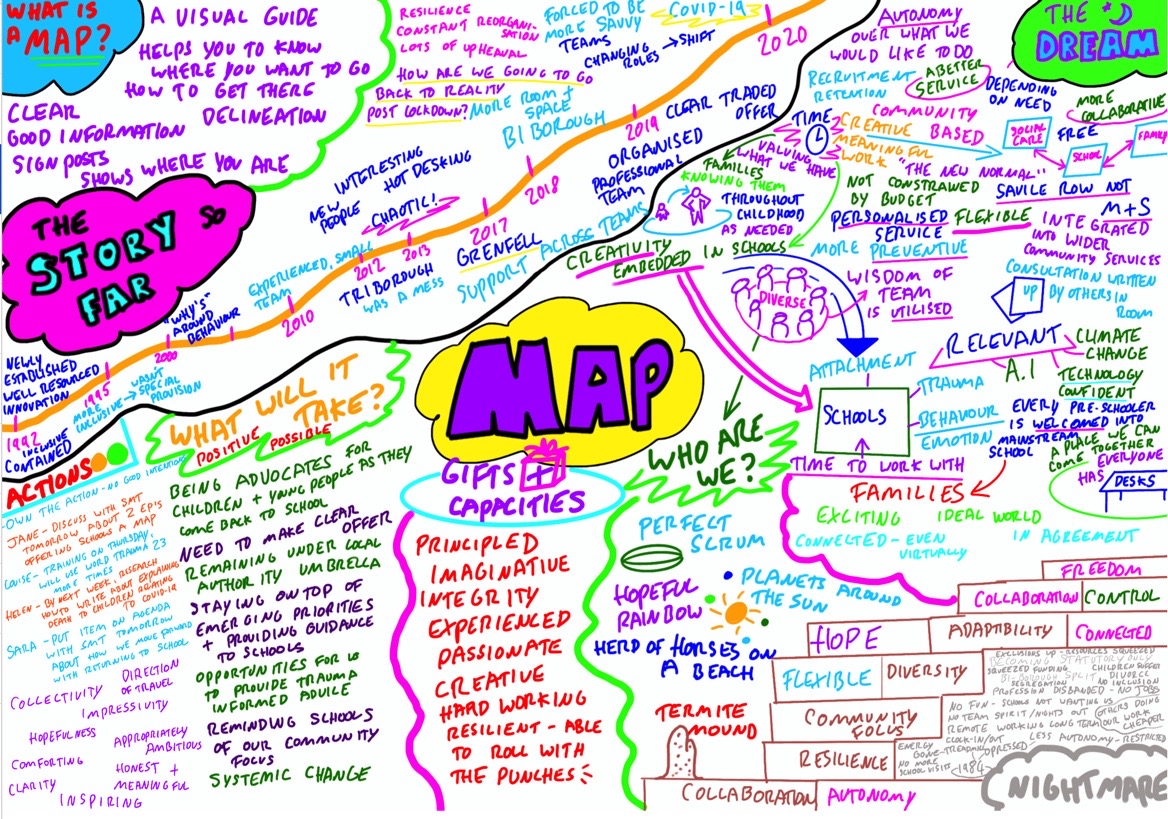 WHAT IS
A MAP?
A VISUAL GUIDE
HELPS YOU TO KNOW
WHERE YOU WANT TO GO
HOW TO GET THERE
DELINEATION
CLEAR
GOOD INFORMATION
SIGN POSTS
SHOWS WHERE YOU ARE
THE
STORY SO
FAR
NEWLY
ESTABLISHED
WELL RESOURCED
INNOVATION
1992
INCLUSIVE
CONTAINED
1995
MORE
INCLUSIVE → WASN'T
SPECIAL
PROVISION
2000
"WHY'S"
AROUND
BEHAVIOUR
EXPERIENCED, SMALL
TEAM
2010
NEW
PEOPLE
INTERESTING
HOT DESKING
CHAOTIC!
2012
2013
TRIBOROUGH
WAS A MESS
2017
GRENFELL
SUPPORT ACROSS TEAMS
MORE ROOM +
SPACE
BI BOROUGH
2018
ORGANISED
PROFESSIONAL
TEAM
2019
CLEAR TRADED
OFFER
RESILIENCE
CONSTANT REORGANI-
SATION
LOTS OF UPHEAVAL
HOW ARE WE GOING TO GO
BACK TO REALITY
POST LOCKDOWN?
FORCED TO BE
MORE SAVVY
TEAMS
CHANGING
ROLES → SHIFT
COVID-19
2020
THE
DREAM
AUTONOMY
OVER WHAT WE
WOULD LIKE TO DO
RECRUITMENT
RETENTION
A BETTER
SERVICE
DEPENDING
ON NEED
MORE
COLLABORATIVE
TIME
VALUING
WHAT WE
HAVE
COMMUNITY
BASED
CREATIVE
MEANINGFUL
WORK
SOCIAL
CARE
FREE
SCHOOL
FAMILY
"THE NEW NORMAL"
FAMILIES
KNOWING THEM
THROUGHOUT
CHILDHOOD
AS NEEDED
NOT CONSTRAWED
BY BUDGET
SAVILE ROW NOT
M+S
PERSONALISED
SERVICE
FLEXIBLE
INTEGRATED
INTO WIDER
COMMUNITY SERVICES
MORE PREVENTIVE
CREATIVITY
EMBEDDED IN SCHOOLS
DIVERSE
WISDOM OF
TEAM
IS UTILISED
CONSULTATION WRITTEN
UP BY OTHERS IN
ROOM
RELEVANT
CLIMATE
CHANGE
A.I
TECHNOLOGY
CONFIDENT
ATTACHMENT
SCHOOLS
TRAUMA
BEHAVIOUR
EMOTION
EVERY PRE-SCHOOLER
IS WELCOMED INTO
MAINSTREAM
SCHOOL
A PLACE WE CAN
COME TOGETHER
EVERYONE
HAS
DESKS
TIME TO WORK WITH
FAMILIES
EXCITING IDEAL WORLD
CONNECTED - EVEN
VIRTUALLY
IN AGREEMENT
MAP
ACTIONS
OWN THE ACTION - NO GOOD INTENTIONS
JANE - DISCUSS WITH SMT
TOMORROW ABOUT 2 EP'S
OFFERING SCHOOLS A MAP
LOUISE - TRAINING ON THURSDAY.
WILL USE WORD TRAUMA 23
MORE TIMES
HELEN - BY NEXT WEEK, RESEARCH
HOW TO WRITE ABOUT EXPLAINING
DEATH TO CHILDREN RELATING
TO COVID-19
SARA - PUT ITEM ON AGENDA
WITH SMT TOMORROW
ABOUT HOW WE MOVE FORWARD
WITH RETURNING TO SCHOOL
COLLECTIVITY
DIRECTION
OF TRAVEL
IMPRESSIVITY
HOPEFULNESS
APPROPRIATELY
AMBITIOUS
COMFORTING
CLARITY
HONEST +
MEANINGFUL
INSPIRING
WHAT WILL IT
TAKE?
POSITIVE POSSIBLE
BEING ADVOCATES FOR
CHILDREN + YOUNG PEOPLE AS THEY
COME BACK TO SCHOOL
NEED TO MAKE CLEAR
OFFER
REMAINING UNDER LOCAL
AUTHORITY UMBRELLA
STAYING ON TOP OF
EMERGING PRIORITIES
+ PROVIDING GUIDANCE
TO SCHOOLS
OPPORTUNITIES FOR US
TO PROVIDE TRAUMA
INFORMED ADVICE
REMINDING SCHOOLS
OF OUR COMMUNITY
FOCUS
SYSTEMIC CHANGE
GIFTS +
CAPACITIES
PRINCIPLED
IMAGINATIVE
INTEGRITY
EXPERIENCED
PASSIONATE
CREATIVE
HARD WORKING
RESILIENT - ABLE
TO ROLL WITH
THE PUNCHES
WHO ARE
WE?
PERFECT
SCRUM
HOPEFUL
RAINBOW
PLANETS AROUND
THE SUN
HERD OF HORSES ON
A BEACH
TERMITE
MOUND
FREEDOM
COLLABORATION CONTROL
HOPE ADAPTIBILITY CONNECTED
FLEXIBLE DIVERSITY
COMMUNITY
FOCUS
RESILIENCE
COLLABORATION AUTONOMY
EXCLUSIONS UP - RESOURCES SQUEEZED
BECOMING STATUTORY ONLY
SQUEEZED FUNDING CHILDREN SUFFER
BI-BOROUGH SPLIT DIVORCE
SEGREGATION NO INCLUSION
PROFESSION DISBANDED - NO JOBS
NO FUN - SCHOOLS NOT WANTING US
NO TEAM SPIRIT / NIGHTS OUT
OTHERS DOING
OUR WORK
CHEAPER
REMOTE WORKING LONG TERM
CLOCK-IN/OUT LESS AUTONOMY - RESTRICTED
ENERGY
GONE - TREADING
OPPRESSED
NO MORE
SCHOOL VISITS
1984
NIGHTMARE